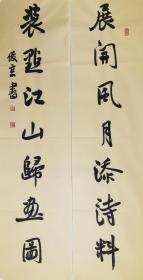 展開風月添詩料
裝點江山歸畫圖
俊宣書